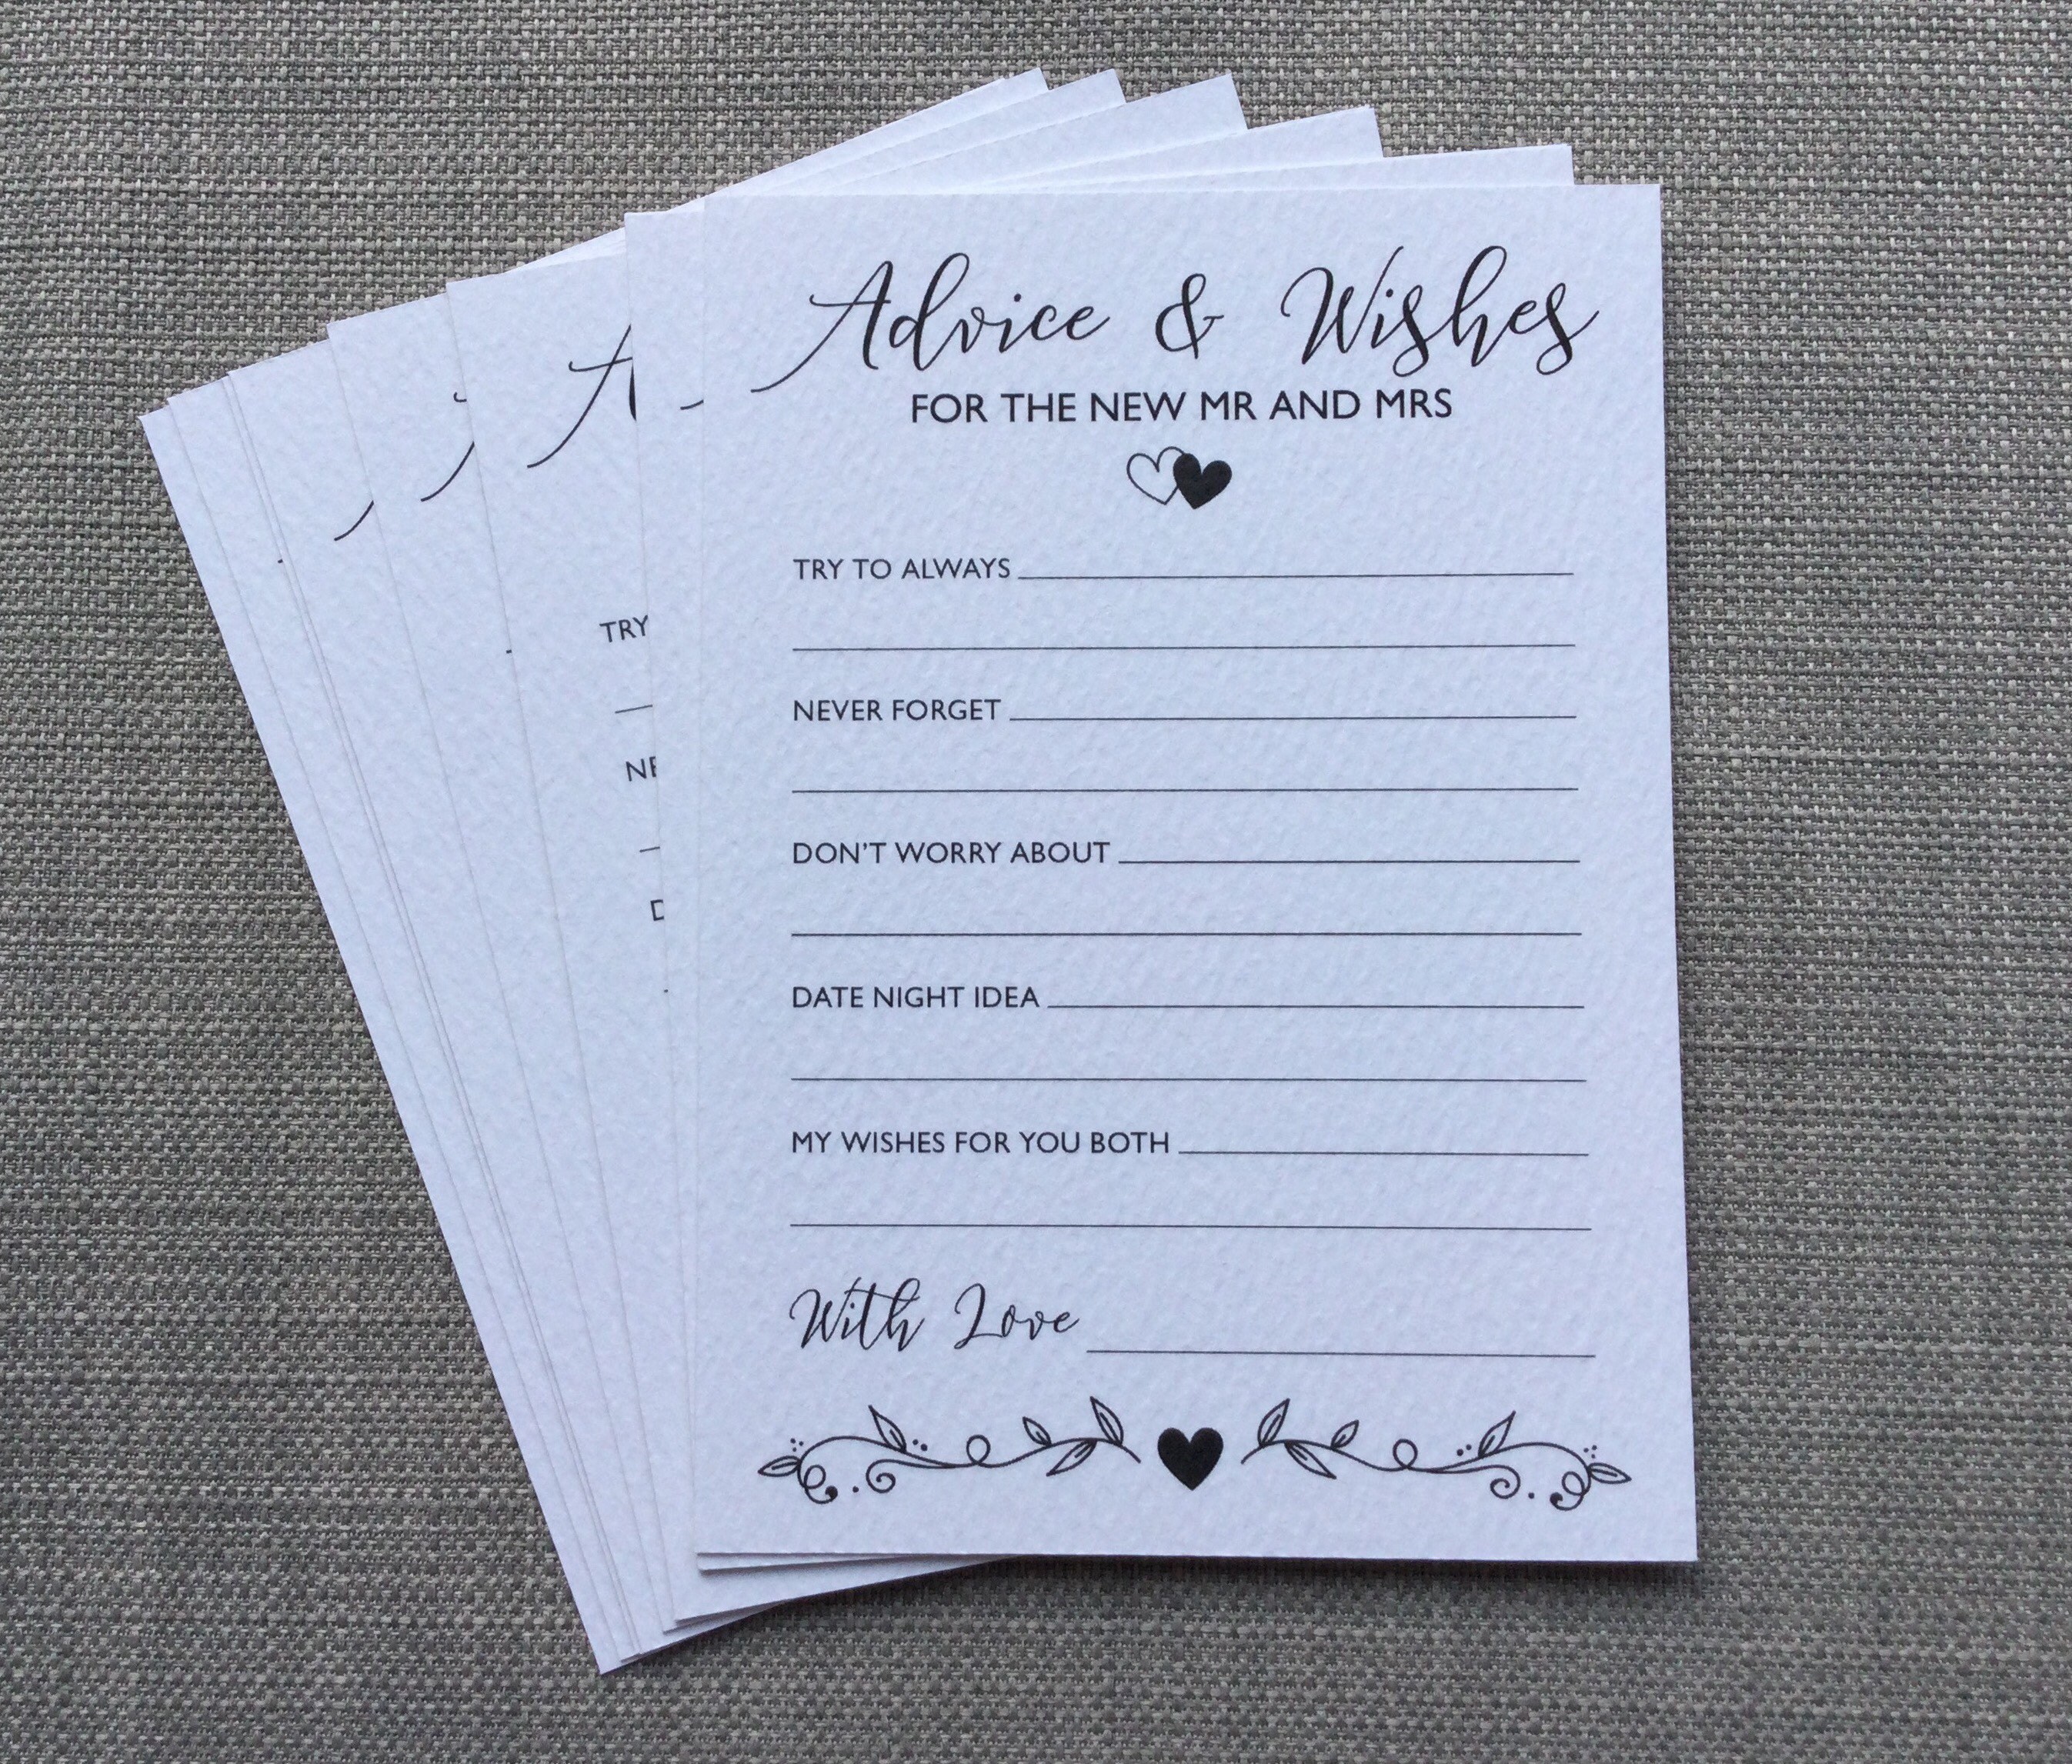 Advice & Wishes
FOR THE NEW MR AND MRS
TRY TO ALWAYS
NEVER FORGET
DON'T WORRY ABOUT
DATE NIGHT IDEA
MY WISHES FOR YOU BOTH
With Love
TRY
NE
D